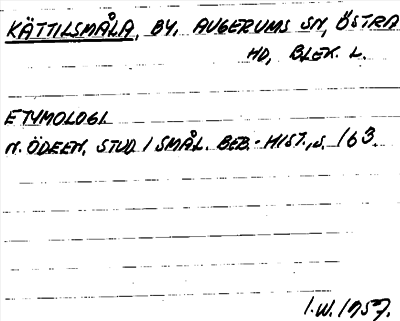 KÄTTILSMÅLA, BY, AUGERUMS SN, ÖSTRA
HD, BLEK. L.
ETYMOLOGI.
N. ÖDEEN, STUD. I SMÅL. BEB.-HIST., S. 163.
I.W. 1957.